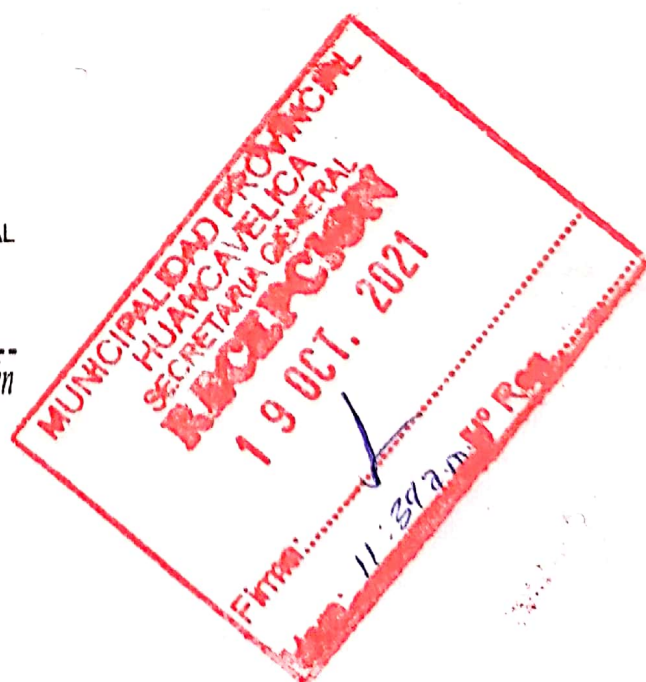 AL
MUNICIPALIDAD PROVINCIAL
HUANCAVELICA
SECRETARIA GENERAL
RECEPCION
19 OCT. 2021
Firma:
Hora: 11:39 a.m Nº Reg.